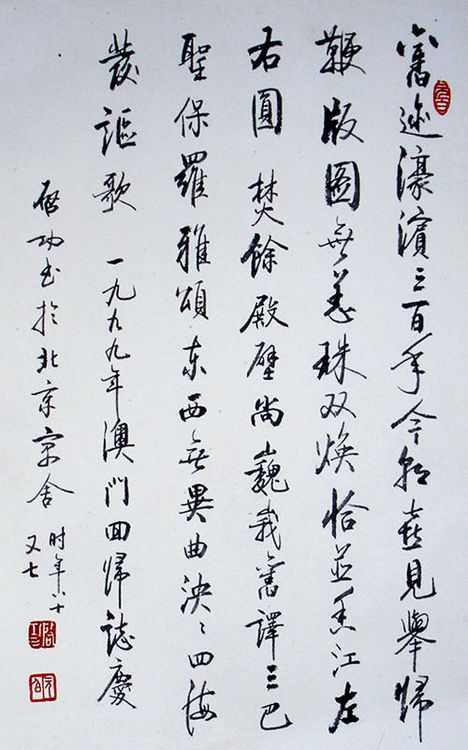 舊迹濠濱三百年今朝喜見舉歸
鞭版圖無恙珠双煥恰並香江左
右圓 焚餘殿壁尚巍峩舊譯三巴
聖保羅雅頌东西無異曲泱〻四海
發謳歌 一九九九年澳門回歸誌慶
啟功书於北京寓舍
时年八十
又七